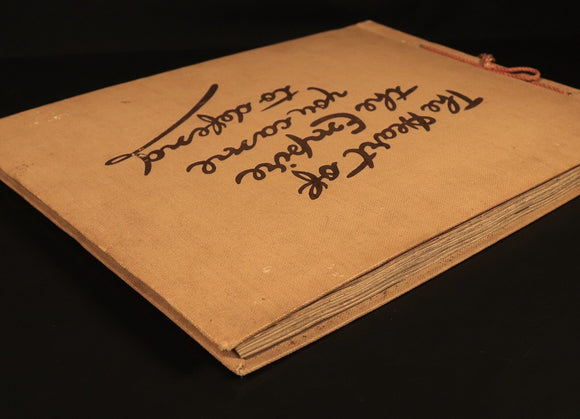 The Heart of
the Empire
you came
to defend